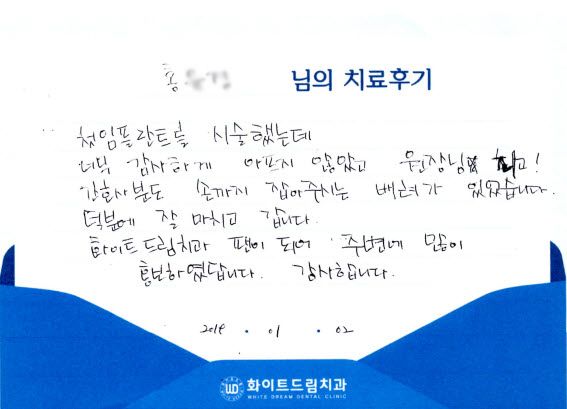 홍 님의 치료후기
첫임플란트를 시술했는데
너무 감사하게 아프지 않았고 원장님 최고!
간호사분도 손까지 잡아주시는 배려가 있었습니다.
덕분에 잘 마치고 갑니다.
화이트드림치과 팬이 되어 주변에 많이
홍보하였답니다. 감사합니다.
01 . 02
화이트드림치과
WHITE DREAM DENTAL CLINIC